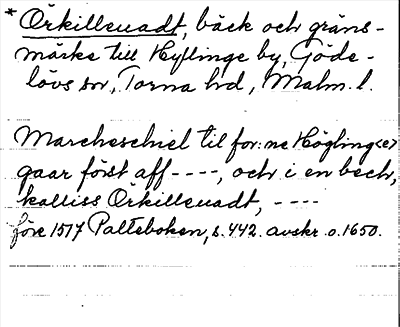 * Örkilleuadt, bäck och gräns-
märke till Hyllinge by, Göde-
lövs sn, Torna hd, Malm. l.
Marcheschiel til for:ne Högling<e>
gaar först aff ----, och i en bech,
kalliss Örkilleuadt, ----
före 1517 Palteboken, s. 442. avskr. o. 1650.